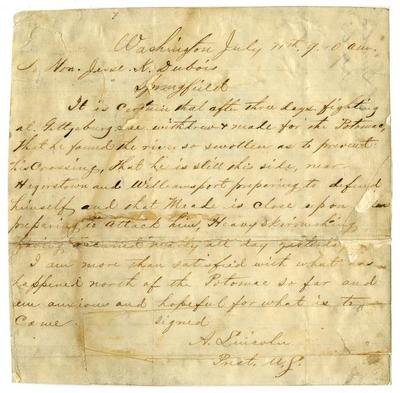 Washington July 11th 9.0 am.
Hon. Jesse K. Dubois
Springfield
It is certain that after three days fighting
at Gettysburg Lee withdrew & made for the Potomac,
that he found the river so swollen as to prevent
his crossing, that he is still this side, near
Hagerstown and Williamsport preparing to defend
himself and that Meade is close upon him
preparing to attack him, Heavy skirmishing
having occurred nearly all day yesterday
I am more than satisfied with what has
happined north of the Potomac so far and
am anxious and hopeful for what is to
come
signed
A. Lincoln
Prest. U.S.